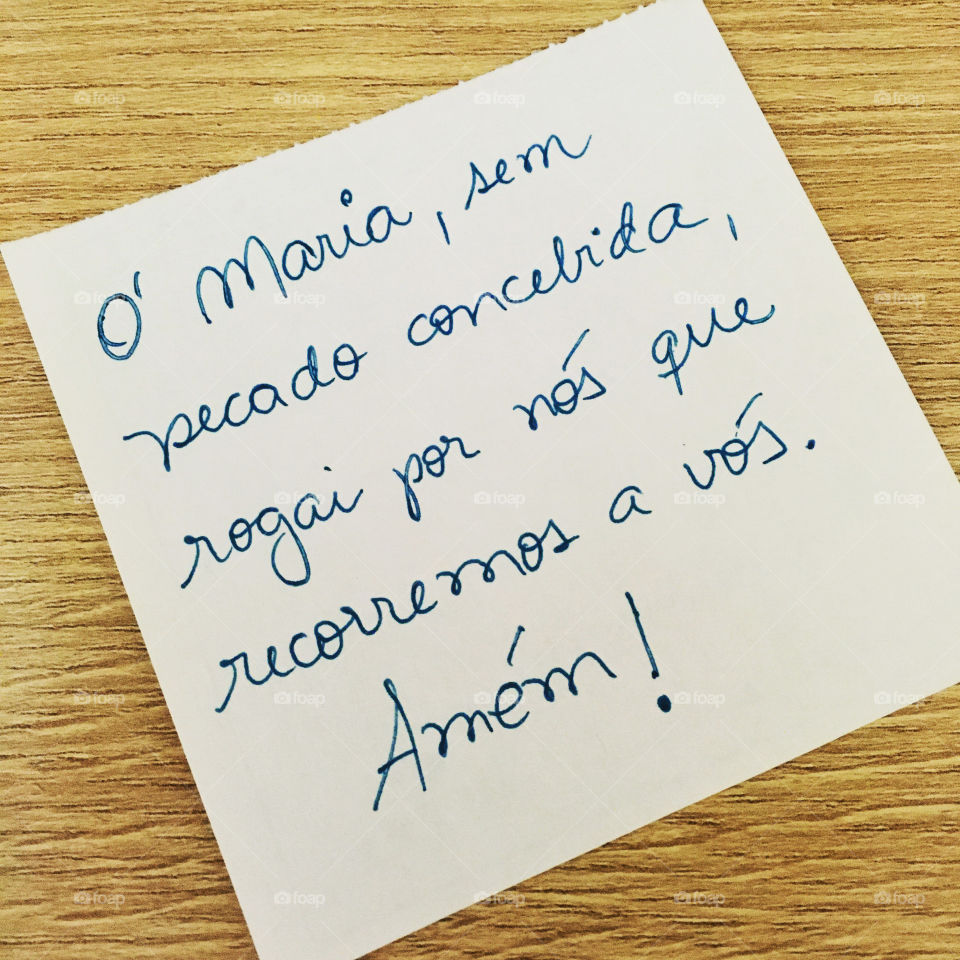 Ó Maria, sem
pecado concebida,
rogai por nós que
recorremos a vós.
Amém!